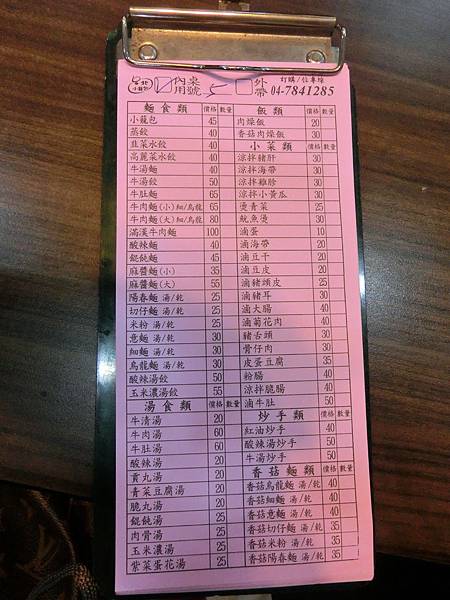 內用 桌號 5 外帶 訂購/位專線
04-7841285
麵食類 價格 數量
小籠包 45
蒸餃 40
韭菜水餃 40
高麗菜水餃 40
牛湯麵 40
牛湯餃 50
牛肚麵 65
牛肉麵(小)細/烏龍 65
牛肉麵(大)細/烏龍 80
滿漢牛肉麵 100
酸辣麵 40
餛飩麵 45
麻醬麵(小) 35
麻醬麵(大) 55
陽春麵 湯/乾 25
切仔麵 湯/乾 25
米粉 湯/乾 25
意麵 湯/乾 30
細麵 湯/乾 30
烏龍麵 湯/乾 30
酸辣湯餃 50
玉米濃湯餃 55
湯食類 價格 數量
牛清湯 20
牛肉湯 60
牛肚湯 60
酸辣湯 20
貢丸湯 20
青菜豆腐湯 20
脆丸湯 20
餛飩湯 25
肉骨湯 25
玉米濃湯 25
紫菜蛋花湯 25
飯類 價格 數量
肉燥飯 20
香菇肉燥飯 30
小菜類 價格 數量
涼拌豬肝 30
涼拌海帶 30
涼拌雞胗 30
涼拌小黃瓜 30
燙青菜 25
魷魚燙 30
滷蛋 10
滷海帶 20
滷豆干 20
滷豆皮 20
滷豬頭皮 25
滷豬耳 30
滷大腸 40
滷菊花肉 40
豬舌頭 30
骨仔肉 30
皮蛋豆腐 35
粉腸 40
涼拌脆腸 40
滷牛肚 50
炒手類 價格 數量
紅油炒手 40
酸辣湯炒手 50
牛湯炒手 50
香菇麵類 價格 數量
香菇烏龍麵 湯/乾 40
香菇細麵 湯/乾 40
香菇意麵 湯/乾 40
香菇切仔麵 湯/乾 35
香菇米粉 湯/乾 35
香菇陽春麵 湯/乾 35